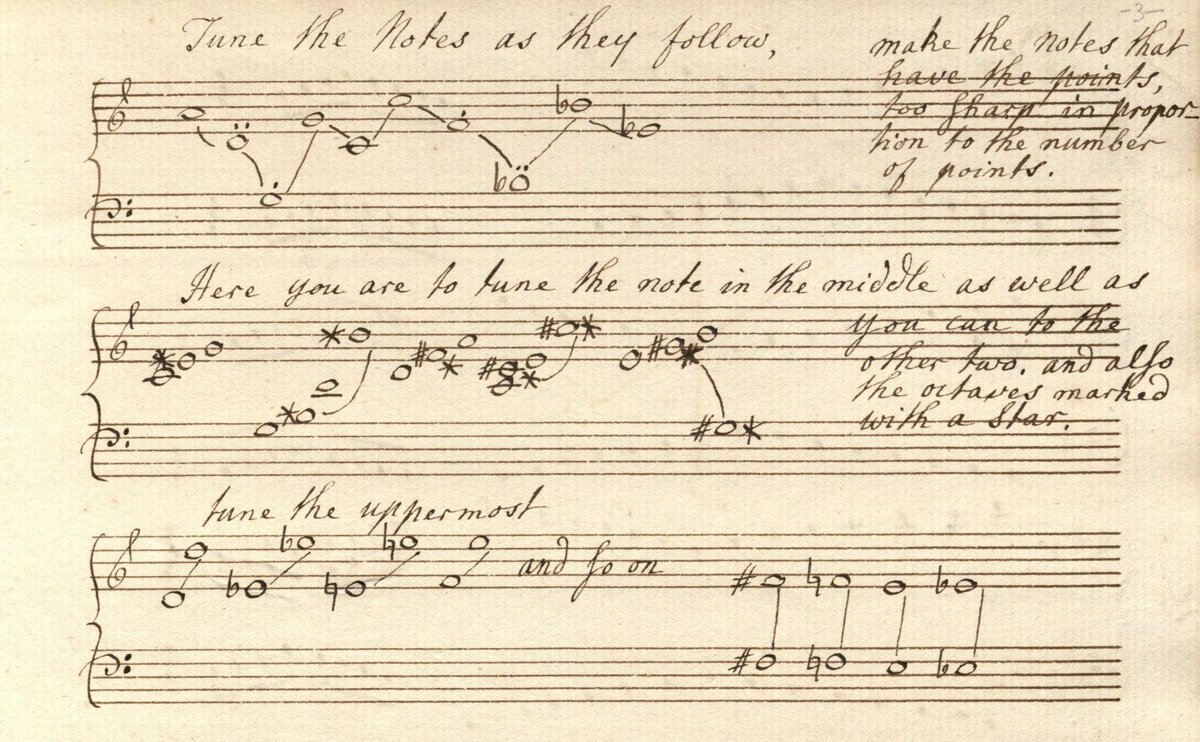 -3-
Tune the Notes as they follow,
make the notes that
have the points,
too sharp in propor=
tion to the number
of points.
Here you are to tune the note in the middle as well as
you can to the
other two. and also
the octaves marked
with a Star.
tune the uppermost
and so on